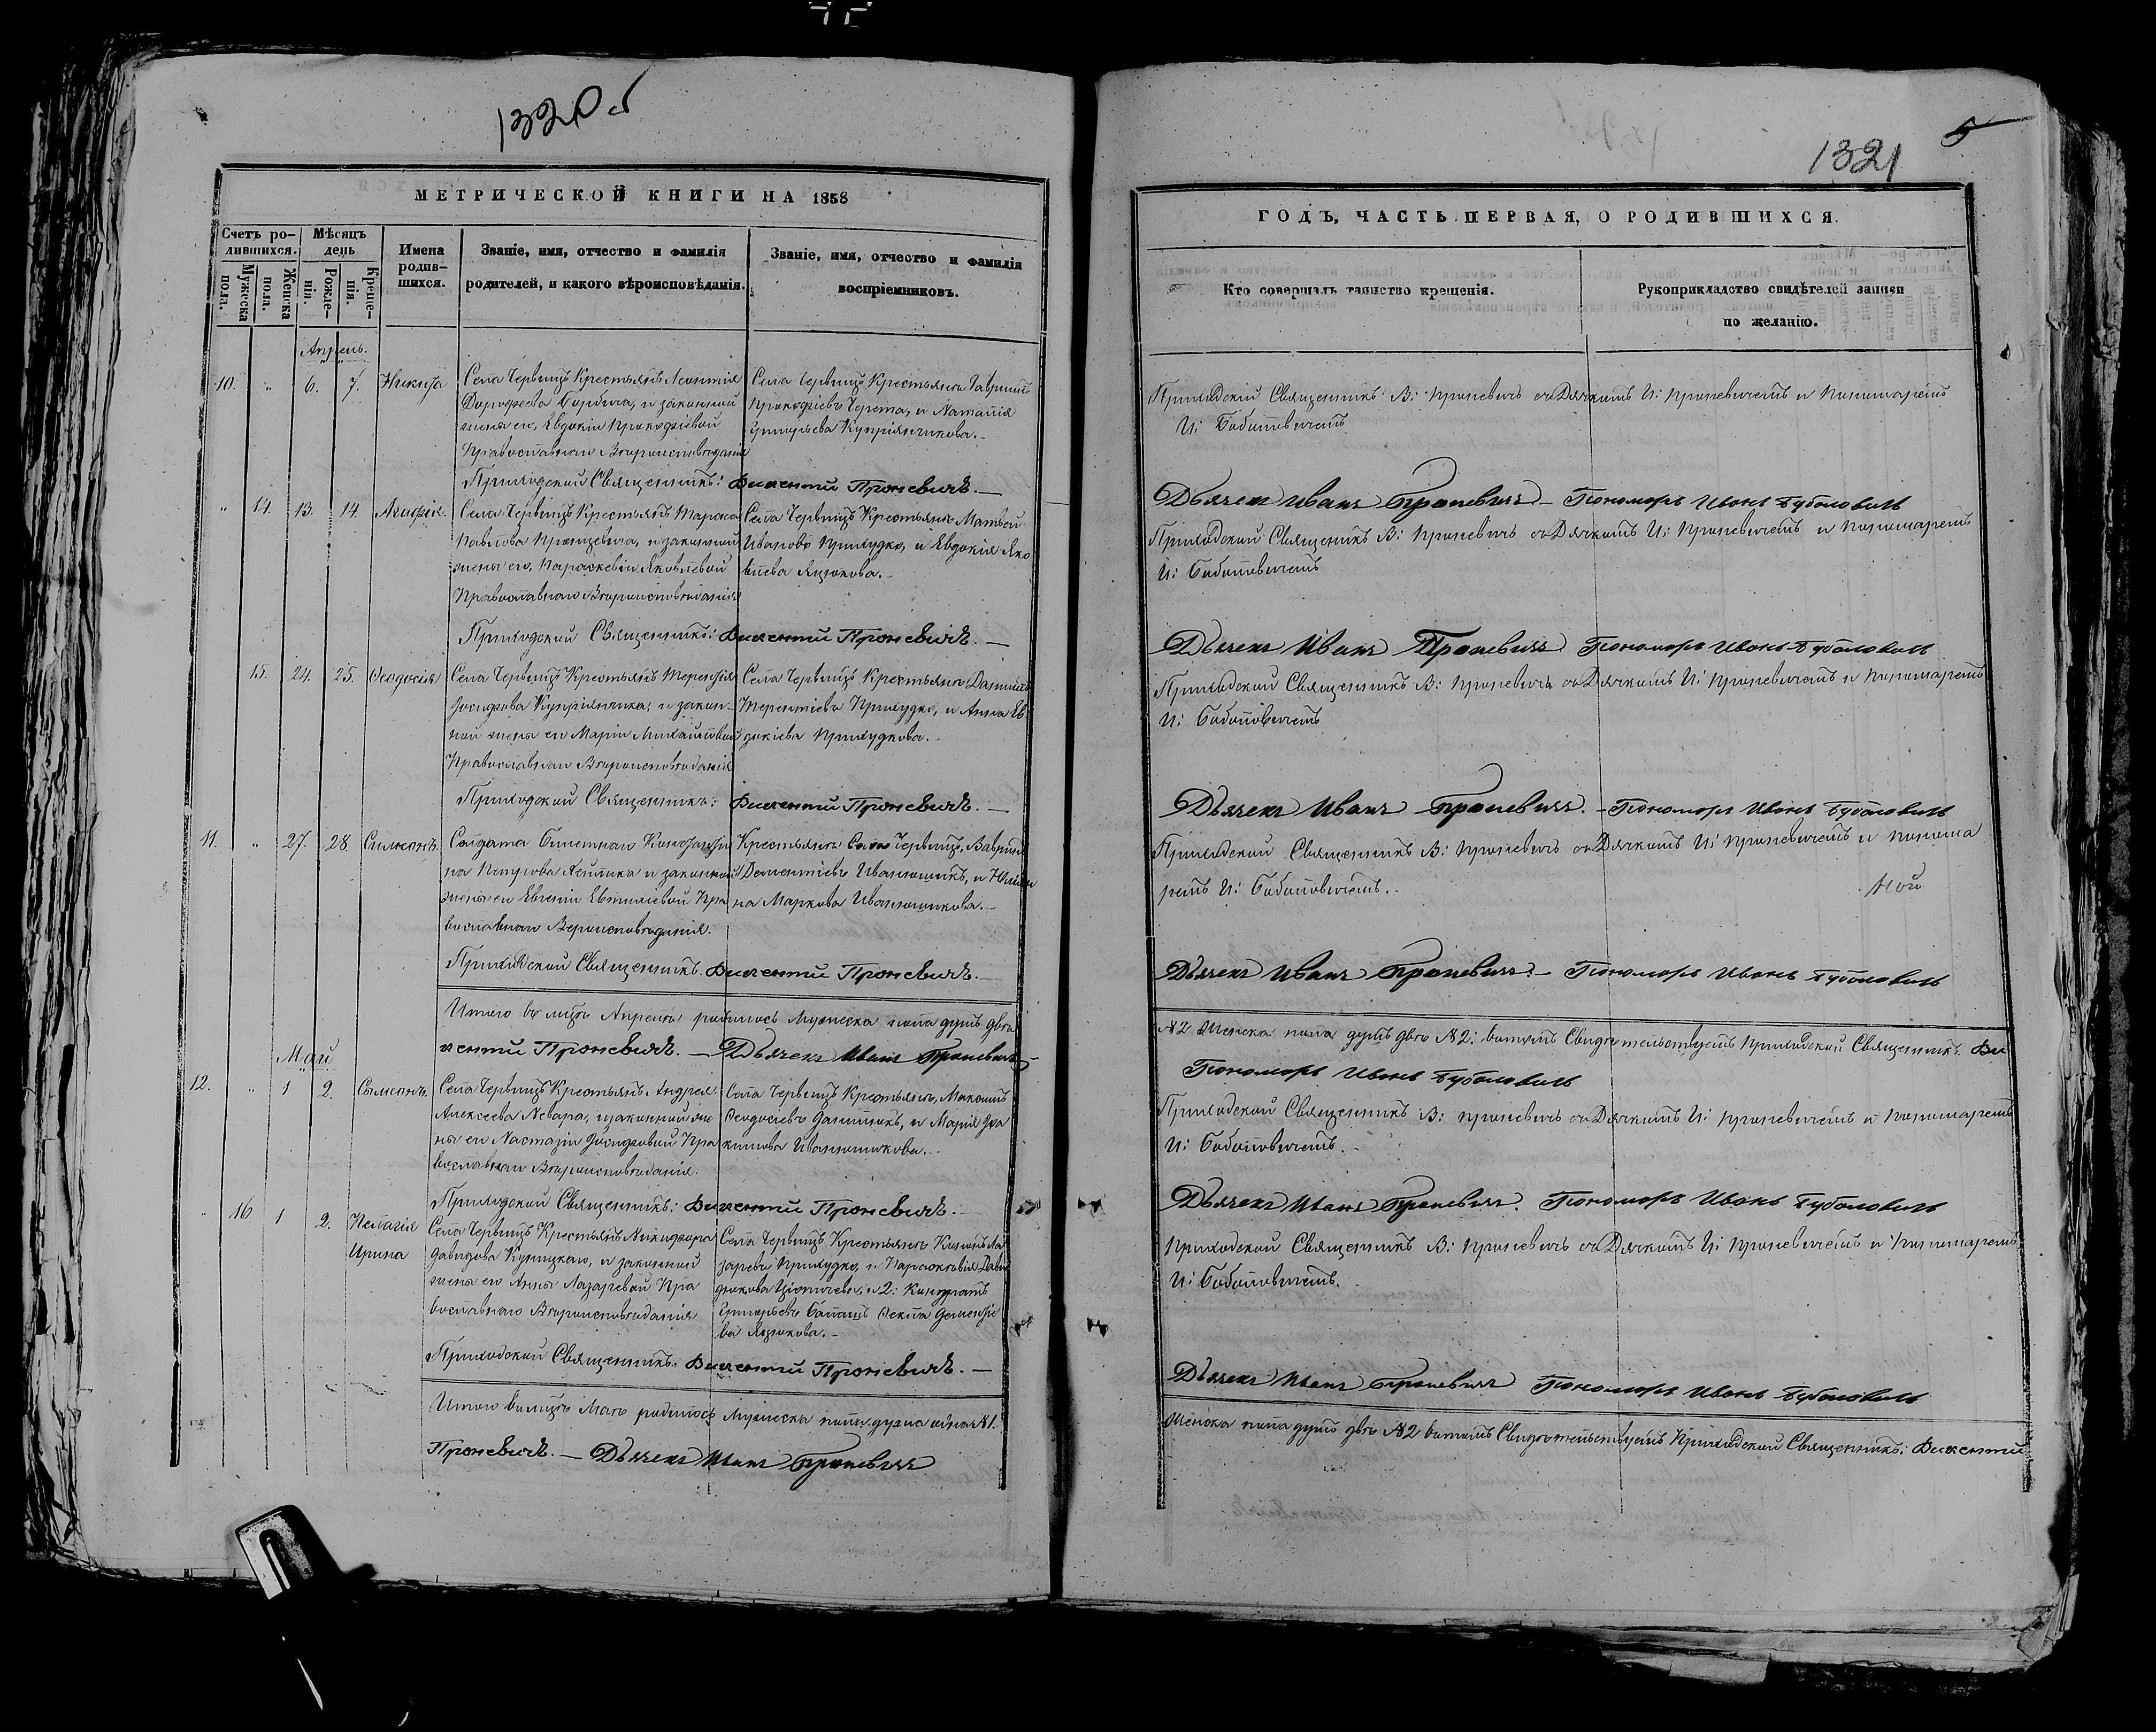 1320 об
МЕТРИЧЕСКОЙ КНИГИ НА 1858
Счетъ ро-
дившихся.
Мѣсяцъ
день
Имена
родив-
шихся.
Званіе, имя, отчество и фамилія
родителей, и какого вѣроисповѣданія.
Званіе, имя, отчество и фамилія
воспріемниковъ.
Мужеска
пола.
Женска
пола.
Рожде-
нія.
Креще-
нія.
Апрель.
10. " 6. 7. Никита
Села Червищъ Крестьянъ Леонтія
Дорофеева, и законной
жены его, Евдокіи Прокофіевой
Православнаго Вѣроисповѣданія
Села Червищъ Крестьянъ Гаврііл
Прокофіевъ, и Наталія
Григорьева Купріянчикова.
Приходскій Священникъ: Викентій Проневичъ.
" 14. 13. 14. Агафія.
Села Червищъ Крестьянъ Марка
Павлова, и законной
жены его, Параскевіи Яковлевой
Православнаго Вѣроисповѣданія
Села Червищъ Крестьянъ Матвей
Ивановъ Прихудко, и Евдокія Яко
влева Яцюкова.
Приходскій Священникъ: Викентій Проневичъ.
15. 24. 25. Феодосія
Села Червищъ Крестьянъ Терентія
Іосифова Купріянчика, и закон-
ной жены его Маріи Михайловой
Православнаго Вѣроисповѣданія
Села Червищъ Крестьянъ Даніилъ
Терентіевъ Прихудко, и Анна Ев
докіева Прихудкова.
Приходскій Священникъ: Викентій Проневичъ.
11. " 27. 28. Симеонъ.
Солдата Билетнаго
на Петрова и законной
жены его Евгеніи Евтихіевой Пра
вославнаго Вероисповѣданія.
Крестьянъ Села Червищъ,
Дементіевъ Иванюшикъ, и Юліан
на Маркова Иванюшикова.
Приходскій Священникъ. Викентій Проневичъ.
Итого въ мцѣ Апрелѣ родилось Мужеска пола душъ двѣ
кентій Проневичъ. — Дьячекъ Иванъ Проневичъ
Май
12. " 1 2. Симеонъ.
Села Червищъ Крестьянъ Андрея
Алексеева Невара, и законной же
ны его Настазіи Іосифовой Пра
вославнаго Вѣроисповѣданія.
Села Червищъ Крестьянъ, Максимъ
Феодосіевъ, и Марія Іоа
кимова Иванюшикова.
Приходскій Священникъ: Викентій Проневичъ.
" 16 1 2. Пелагія
Ирина
Села Червищъ Крестьянъ Никифора
Давидова, и законной
жены его Анны Лазаревой Пра
вославнаго Вѣроисповѣданія
Села Червищъ Крестьянъ Ла
заревъ Прихудко, и Параскевія Дави
дюкова, и 2: Кондратъ
Григорьевъ Фекла Дементіе
ва Яцюкова.
Приходскій Священникъ: Викентій Проневичъ.
Итого въ мцѣ Маѣ родилось Мужеска пола душа одна №1.
Проневичъ. — Дьячекъ Иванъ Проневичъ
5
1321
ГОДЪ, ЧАСТЬ ПЕРВАЯ, О РОДИВШИХСЯ.
Кто совершалъ таинство крещенія.
Рукоприкладство свидѣтелей записи
по желанію.
Приходскій Священникъ В: Проневичъ съ Дячкомъ И: Проневичемъ и Пономаремъ
И: Бабаловичемъ
Дьячекъ Иванъ Проневичъ — Пономарь Иванъ Бубаловичъ
Приходскій Священникъ В: Проневичъ съ Дячкомъ И: Проневичемъ и Пономаремъ
И: Бабаловичемъ
Дьячекъ Иванъ Проневичъ Пономарь Иванъ Бубаловичъ
Приходскій Священникъ В: Проневичъ съ Дячкомъ И: Проневичемъ и Пономаремъ
И: Бабаловичемъ
Дьячекъ Иванъ Проневичъ. — Пономарь Иванъ Бубаловичъ
Приходскій Священникъ В: Проневичъ съ Дячкомъ И: Проневичемъ и Понома
ремъ И: Бабаловичемъ.
Дьячекъ Иванъ Проневичъ. — Пономарь Иванъ Бубаловичъ
№2 Женска пола душъ двѣ №2: въ томъ Свидѣтельствуетъ Приходскій Священникъ. Ви
Пономарь Иванъ Бубаловичъ
Приходскій Священникъ В: Проневичъ съ Дячкомъ И: Проневичемъ и Пономаремъ
И: Бабаловичемъ.
Дьячекъ Иванъ Проневичъ. Пономарь Иванъ Бубаловичъ
Приходскій Священникъ В: Проневичъ съ Дячкомъ И: Проневичемъ и Пономаремъ
И: Бабаловичемъ.
Дьячекъ Иванъ Проневичъ Пономарь Иванъ Бубаловичъ
Женска пола душъ двѣ №2 въ томъ Свидѣтельствуетъ Приходскій Священникъ: Викентій